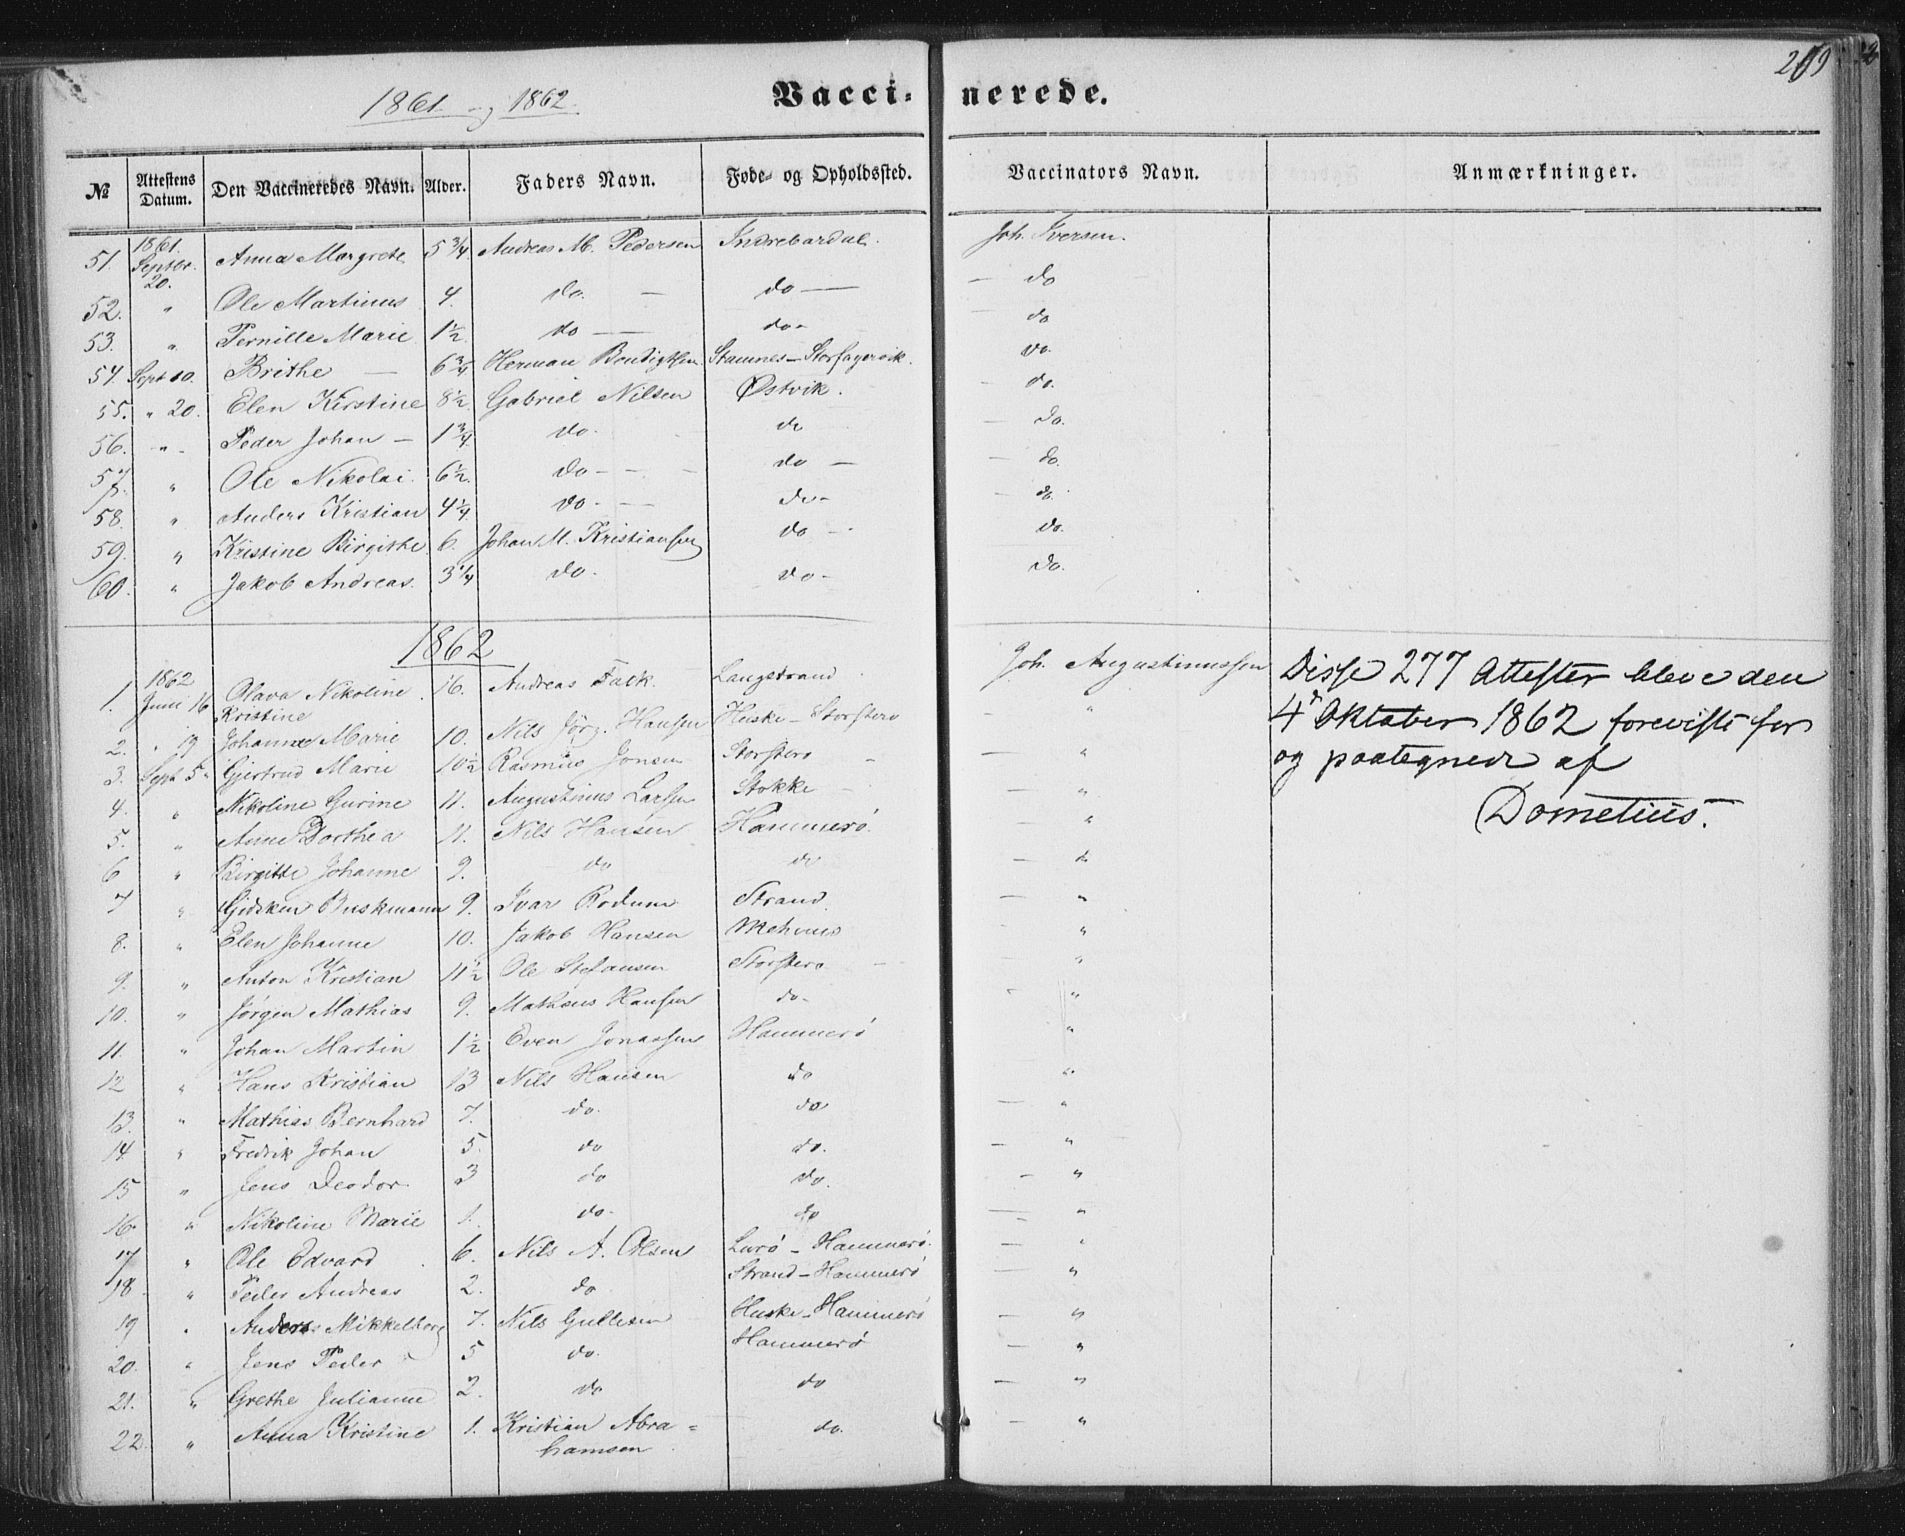 1861 og 1862 Vacci- nerede. 209
№ Attestens Datum. Den Vaccineredes Navn. Alder. Faders Navn. Føde- og Opholdssted. Vaccinators Navn. Anmærkninger.
51. 1861. Septbr. 20. Anna Margrete 5 3/4 Andreas M. Pedersen Indrebardal. Joh. Iversen.
52. " Ole Martinus 4. do. — do — — do
53. " Pernille Marie 1 1/2. do — do - — do
54. Sept 20. Brithe — 6 3/4 Herman Stamnes - Storfagervik. — do.
55. " 20. Elen Kirstine 8 1/2. Gabriel Nilsen Østvik. — do.
56. " - Peder Johan — 1 3/4. do. do — do.
57. " Ole Nikolai. 6 1/2. do - — do — — do.
58. " Anders Kristian 4 1/4. do - — do - — do.
59. " Kristine Birgithe 6. Johan M. Kristiansen do - do.
60. " Jakob Andreas. 3 1/4 do. do - do.
1862
1. 1862 Juni 16 Olava Nikoline Kristine 16. Andreas Falk. Langstrand Joh. Augustinussen
2. " 19 Johanne Marie 10. Nils Jörg. Hansen Huske - Storsterö — "
3. Sept 5 " Gjertrud Marie 10 1/2 Rasmus Jonsen Storsterö — "
4. " Nikoline Gurine 11. Augustinus Larsen Stokke — "
5. " Anne Dorthea 11. Nils Hansen Hammerö. — "
6 " Birgitte Johanne 9. do do — "
7 " Gidsken Buskmann 9. Ivar Rodum Strand. — "
8. " Elen Johanne 10. Jakob Hansen — "
9. " Anton Kristian 11 1/2 Ole Stefansen Storsterö — "
10. " Jørgen Mathias 9. Mathias Hansen do - - "
11. " Johan Martin 1 1/2 Even Jonassen Hammerö "
12 " Hans Kristian 13 Nils Hansen do — "
13. " Mathias Bernhard 7. do. do — "
14 " Fredrik Johan 5. do do. — "
15 " Jens Deodor 3 do do. — "
16. " Nikoline Marie 1. do. do — "
17 " Ole Edvard 6. Nils A. Olsen Lurö - Hammerö. — "
18. " Peder Andreas 2. do Strand - Hammerö — "
19 " Anders Mikkelborg 7. Nils Gullesen Huske - Hammerö — "
20. " Jens Peder 5 do. Hammerö — "
21. " Grethe Julianne 2. do do — "
22. " Anna Kristine 1. Kristian Abra= hamsen do. — "
Disse 277 Attester bleve den
4de Oktober 1862 foreviste for
og paategnede af
Dometius.